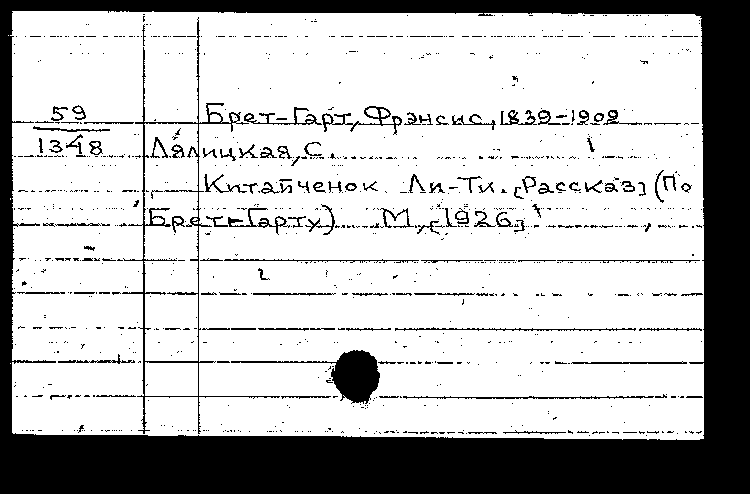 59
1348
Брет-Гарт, Фрэнсис, 1839-1902
Лялицкая, С.
Китайченок Ли-Ти. [Рассказ] (По
Брет-Гарту) М., [1926]